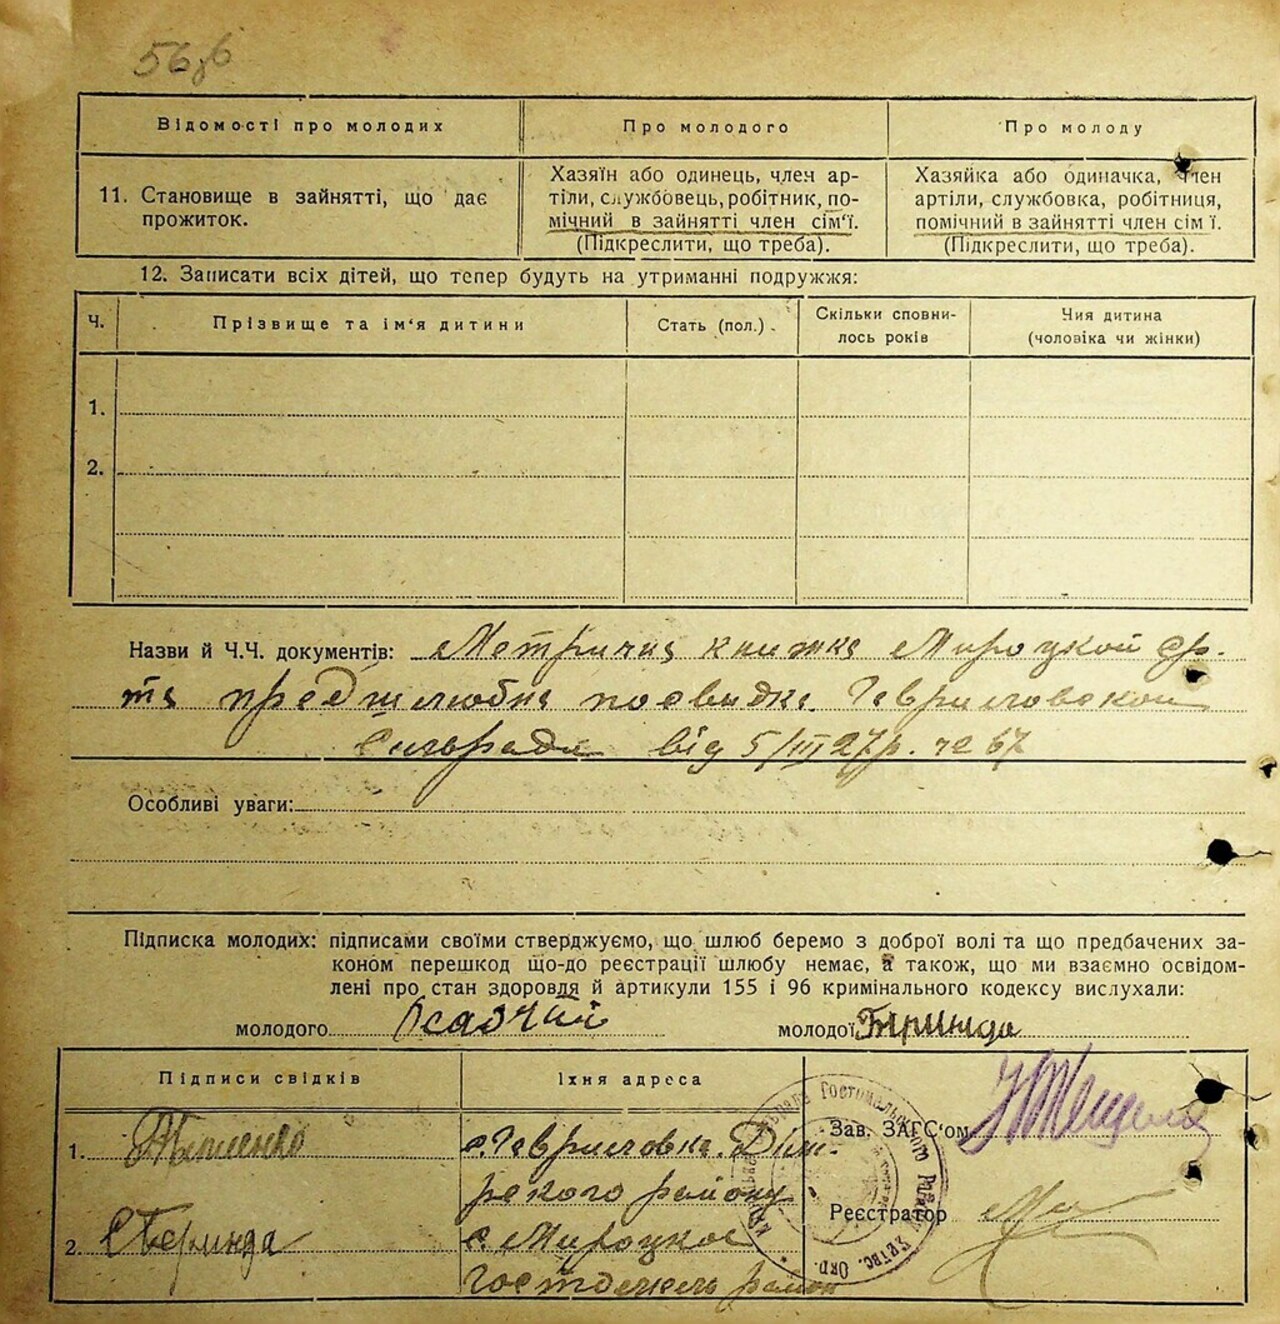 56зб
Відомості про молодих
Про молодого
Про молоду
11. Становище в зайнятті, що дає прожиток.
Хазяїн або одинець, член ар-
тіли, службовець, робітник, по-
мічний в зайнятті член сім'ї.
(Підкреслити, що треба).
Хазяйка або одиначка, член
артіли, службовка, робітниця,
помічний в зайнятті член сім ї.
(Підкреслити, що треба).
12. Записати всіх дітей, що тепер будуть на утриманні подружжя:
Ч.
Прізвище та ім'я дитини
Стать (пол.)
Скільки сповни-
лось років
Чия дитина
(чоловіка чи жінки)
1.
2.
Назви й Ч.Ч. документів: Метрична книжка Мироцкой ср.
та предшлюбна посвидка Гавриловскои
Сильради від 5/III 27 р. че 67
Особливі уваги:
Підписка молодих: підписами своїми стверджуємо, що шлюб беремо з доброї волі та що предбачених за-
коном перешкод що-до реєстрації шлюбу немає, а також, що ми взаємно освідом-
лені про стан здоровля й артикули 155 і 96 кримінального кодексу вислухали:
молодого Осадчий молодої Биринда
Підписи свідків
Їхня адреса
Зав. ЗАГС'ом
1.
с. Гавриловка. Дим.
рского району
Реєстратор
2. Биринда
с. Мироцкое
Гостомель район